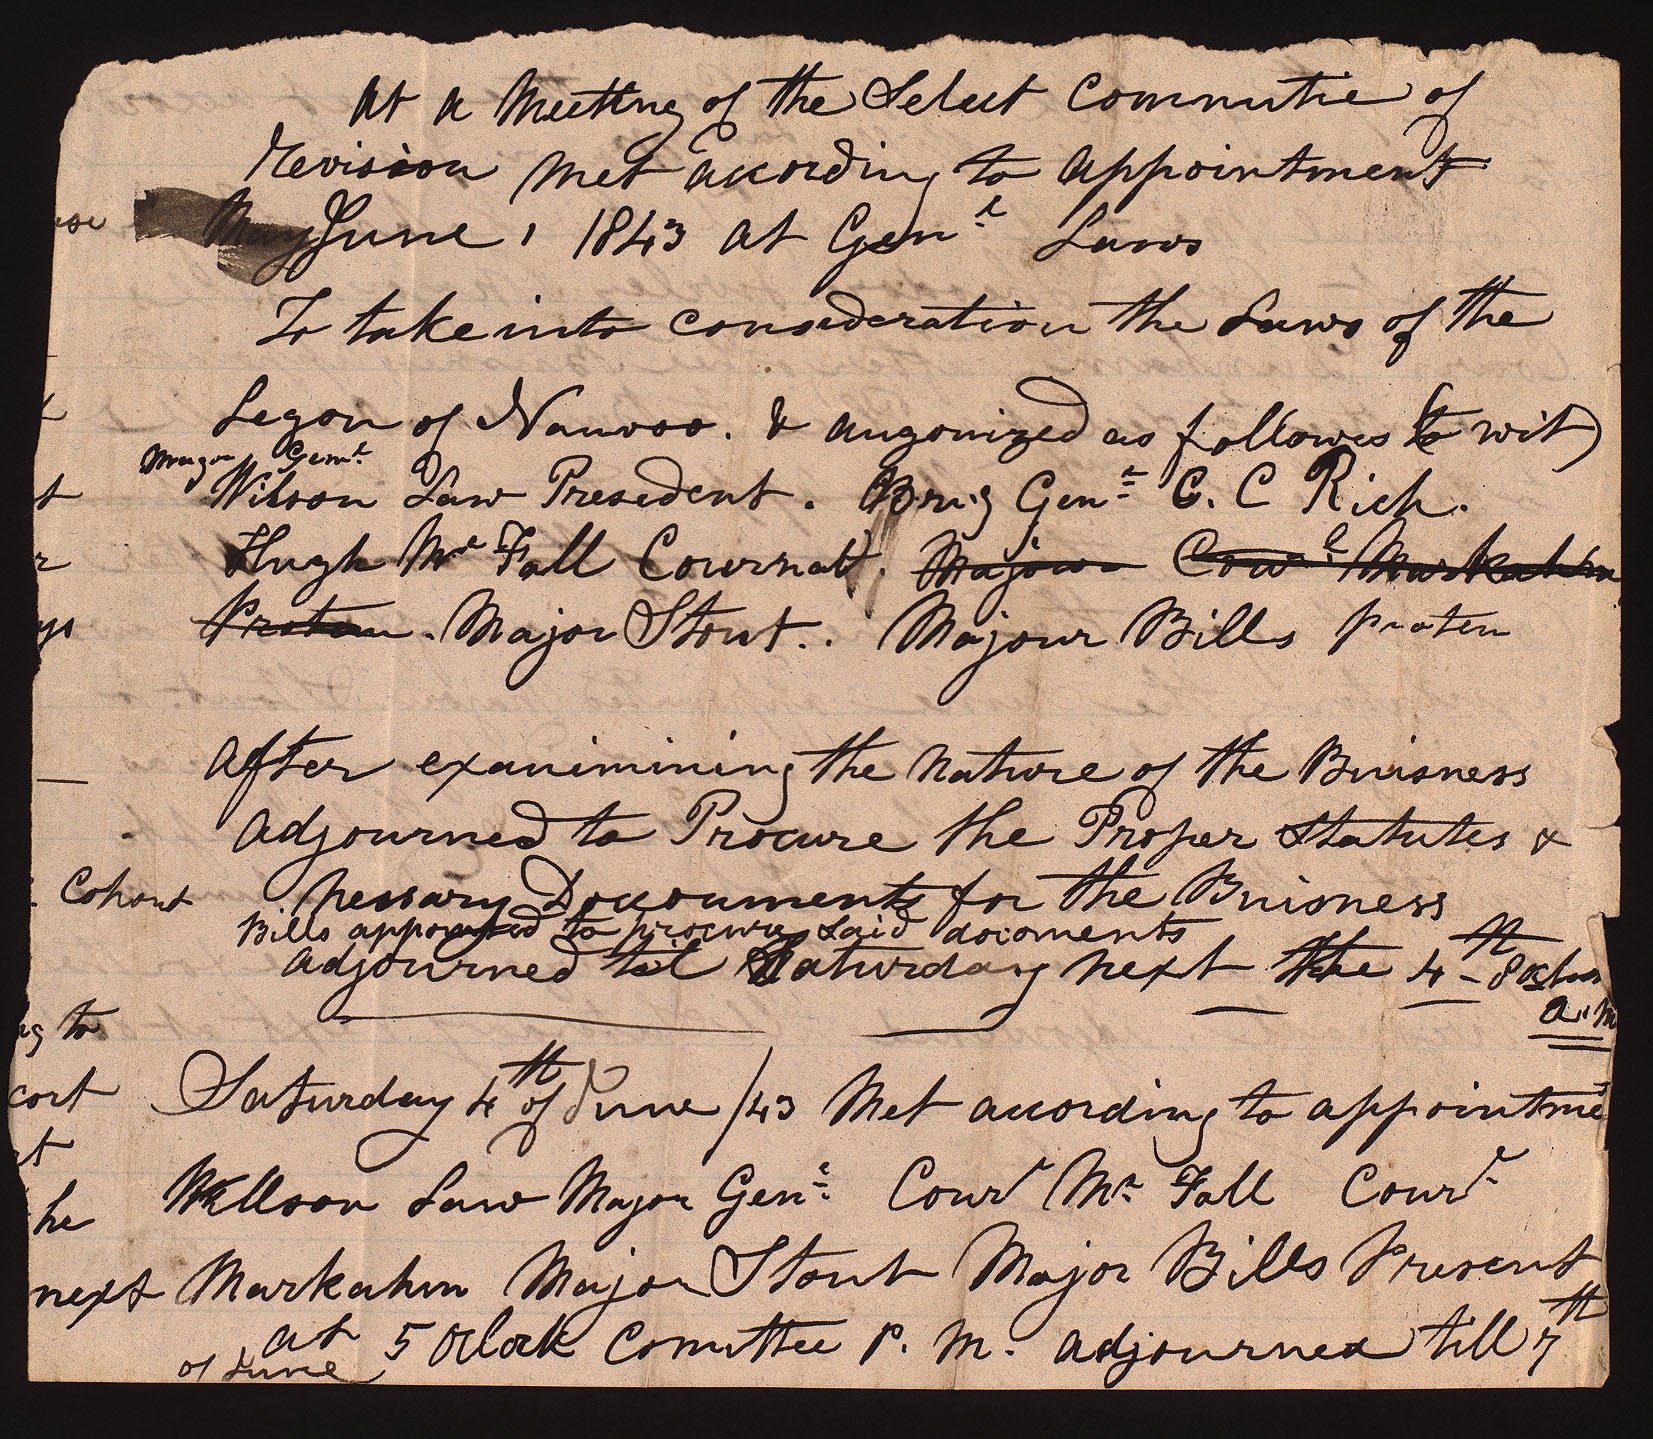 at a Meetting of the Select Committie of
Revision met acording to appointment
May June 1 1843 at Genl Laws
To take into consideration the Laws of the
Legon of Nauvoo. & augonized as follows (to wit)
Genl
Wilson Law Presedent. Brig Genl C. C Rich.
Hugh Mc Fall Cournal. Majour Courl Markahm
Protem. Major Stout.. Majour Bills protem
after exanimining the nature of the Buisness
adjourned to Procure the Proper Statutes &
nessary Documents for the Buisness
Bills appointed to procure said docoments
adjourned til Saturday next the 4th 8 oclock
a.m
Saturday 4th of June /43 Met acording to appointme
Willson Law Major Genl Cour Mc Fall Cour
Markahm Major Stout Major Bills Present
at 5 Oclock Comittee P. M. adjourned till 7th
of June
Cohort
ng to
cort
he
next